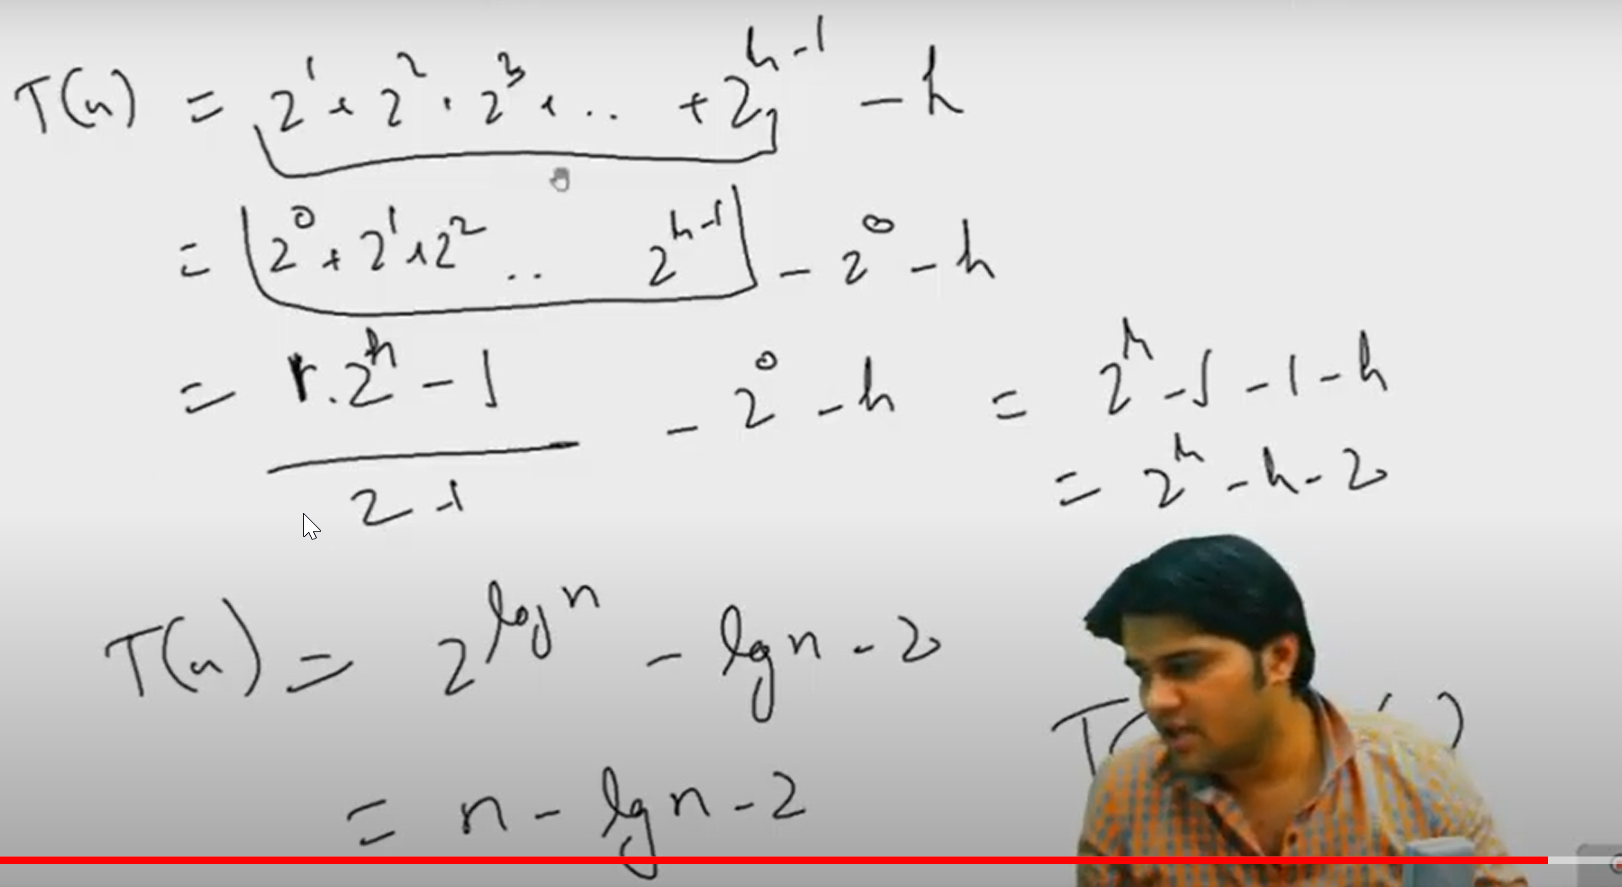 T(n) = 2^1 + 2^2 + 2^3 + .. + 2^{h-1} - h
= [2^0 + 2^1 + 2^2 .. 2^{h-1}] - 2^0 - h
= \frac{1.2^h - 1}{2-1} - 2^0 - h = 2^h - 1 - 1 - h
= 2^h - h - 2
T(n) = 2^{log n} - lg n - 2
T( ( )
= n - lg n - 2